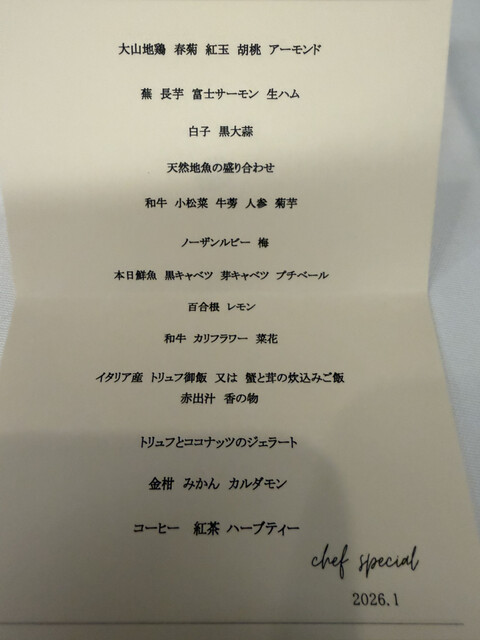 大山地鶏 春菊 紅玉 胡桃 アーモンド
蕪 長芋 富士サーモン 生ハム
白子 黒大蒜
天然地魚の盛り合わせ
和牛 小松菜 牛蒡 人参 菊芋
ノーザンルビー 梅
本日鮮魚 黒キャベツ 芽キャベツ プチベール
百合根 レモン
和牛 カリフラワー 菜花
イタリア産 トリュフ御飯 又は 蟹と茸の炊込みご飯
赤出汁 香の物
トリュフとココナッツのジェラート
金柑 みかん カルダモン
コーヒー 紅茶 ハーブティー
chef special
2026.1